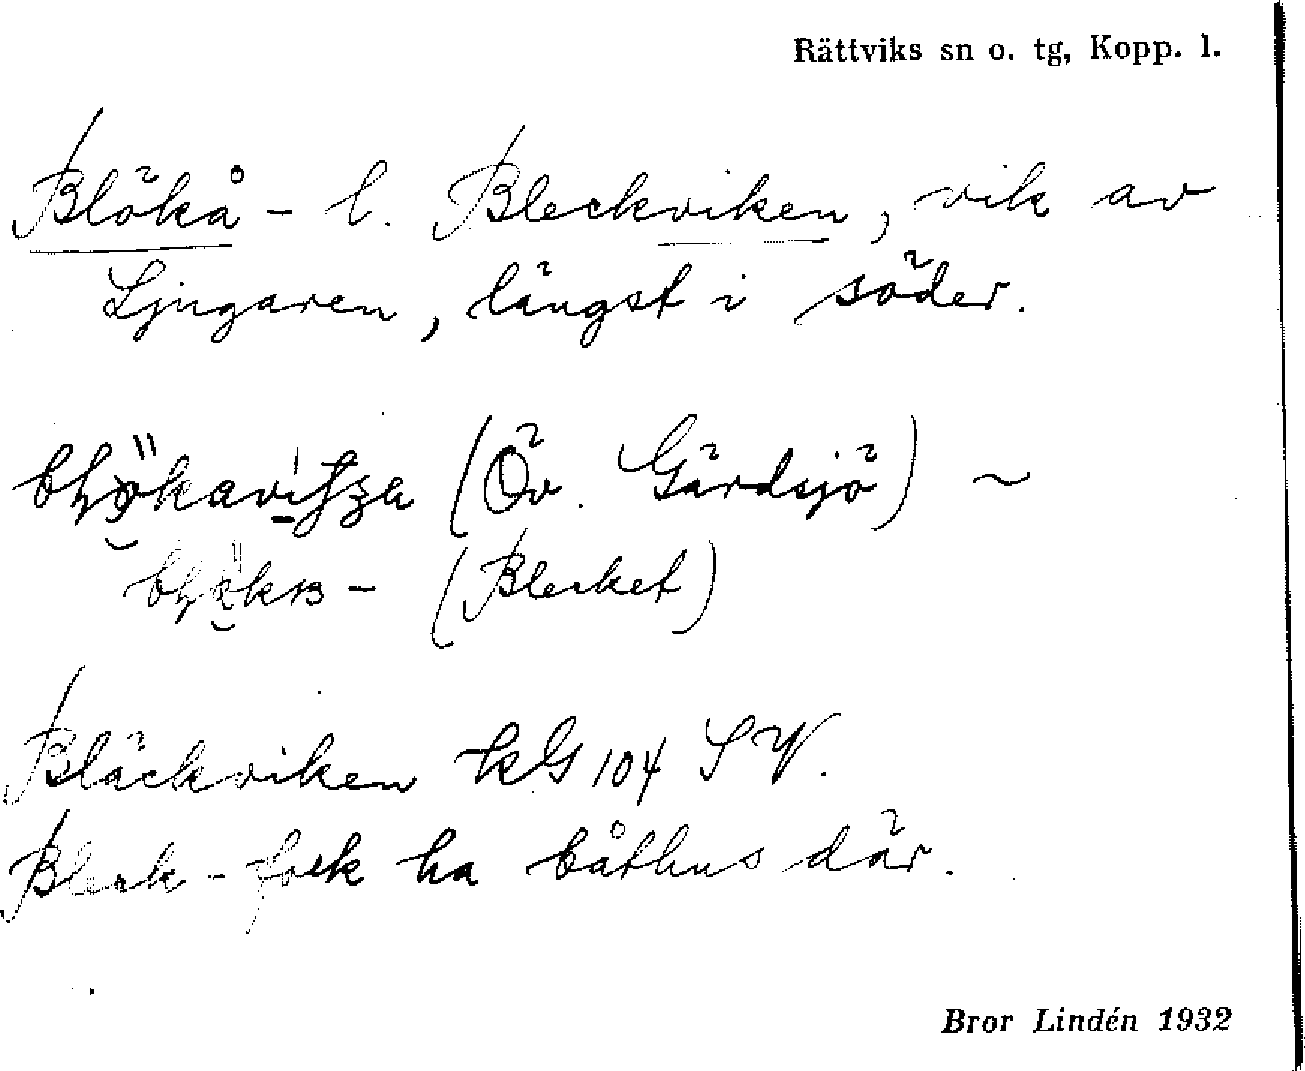 Rättviks sn o. tg, Kopp. l.
Blökå- l. Bleckviken, vik av
Ljugaren, längst i söder.
(Öv. Gärdsjö) ~
(Blecket)
Bläckviken kG 104 SV.
Bleck-folk ha båthus där.
Bror Lindén 1932